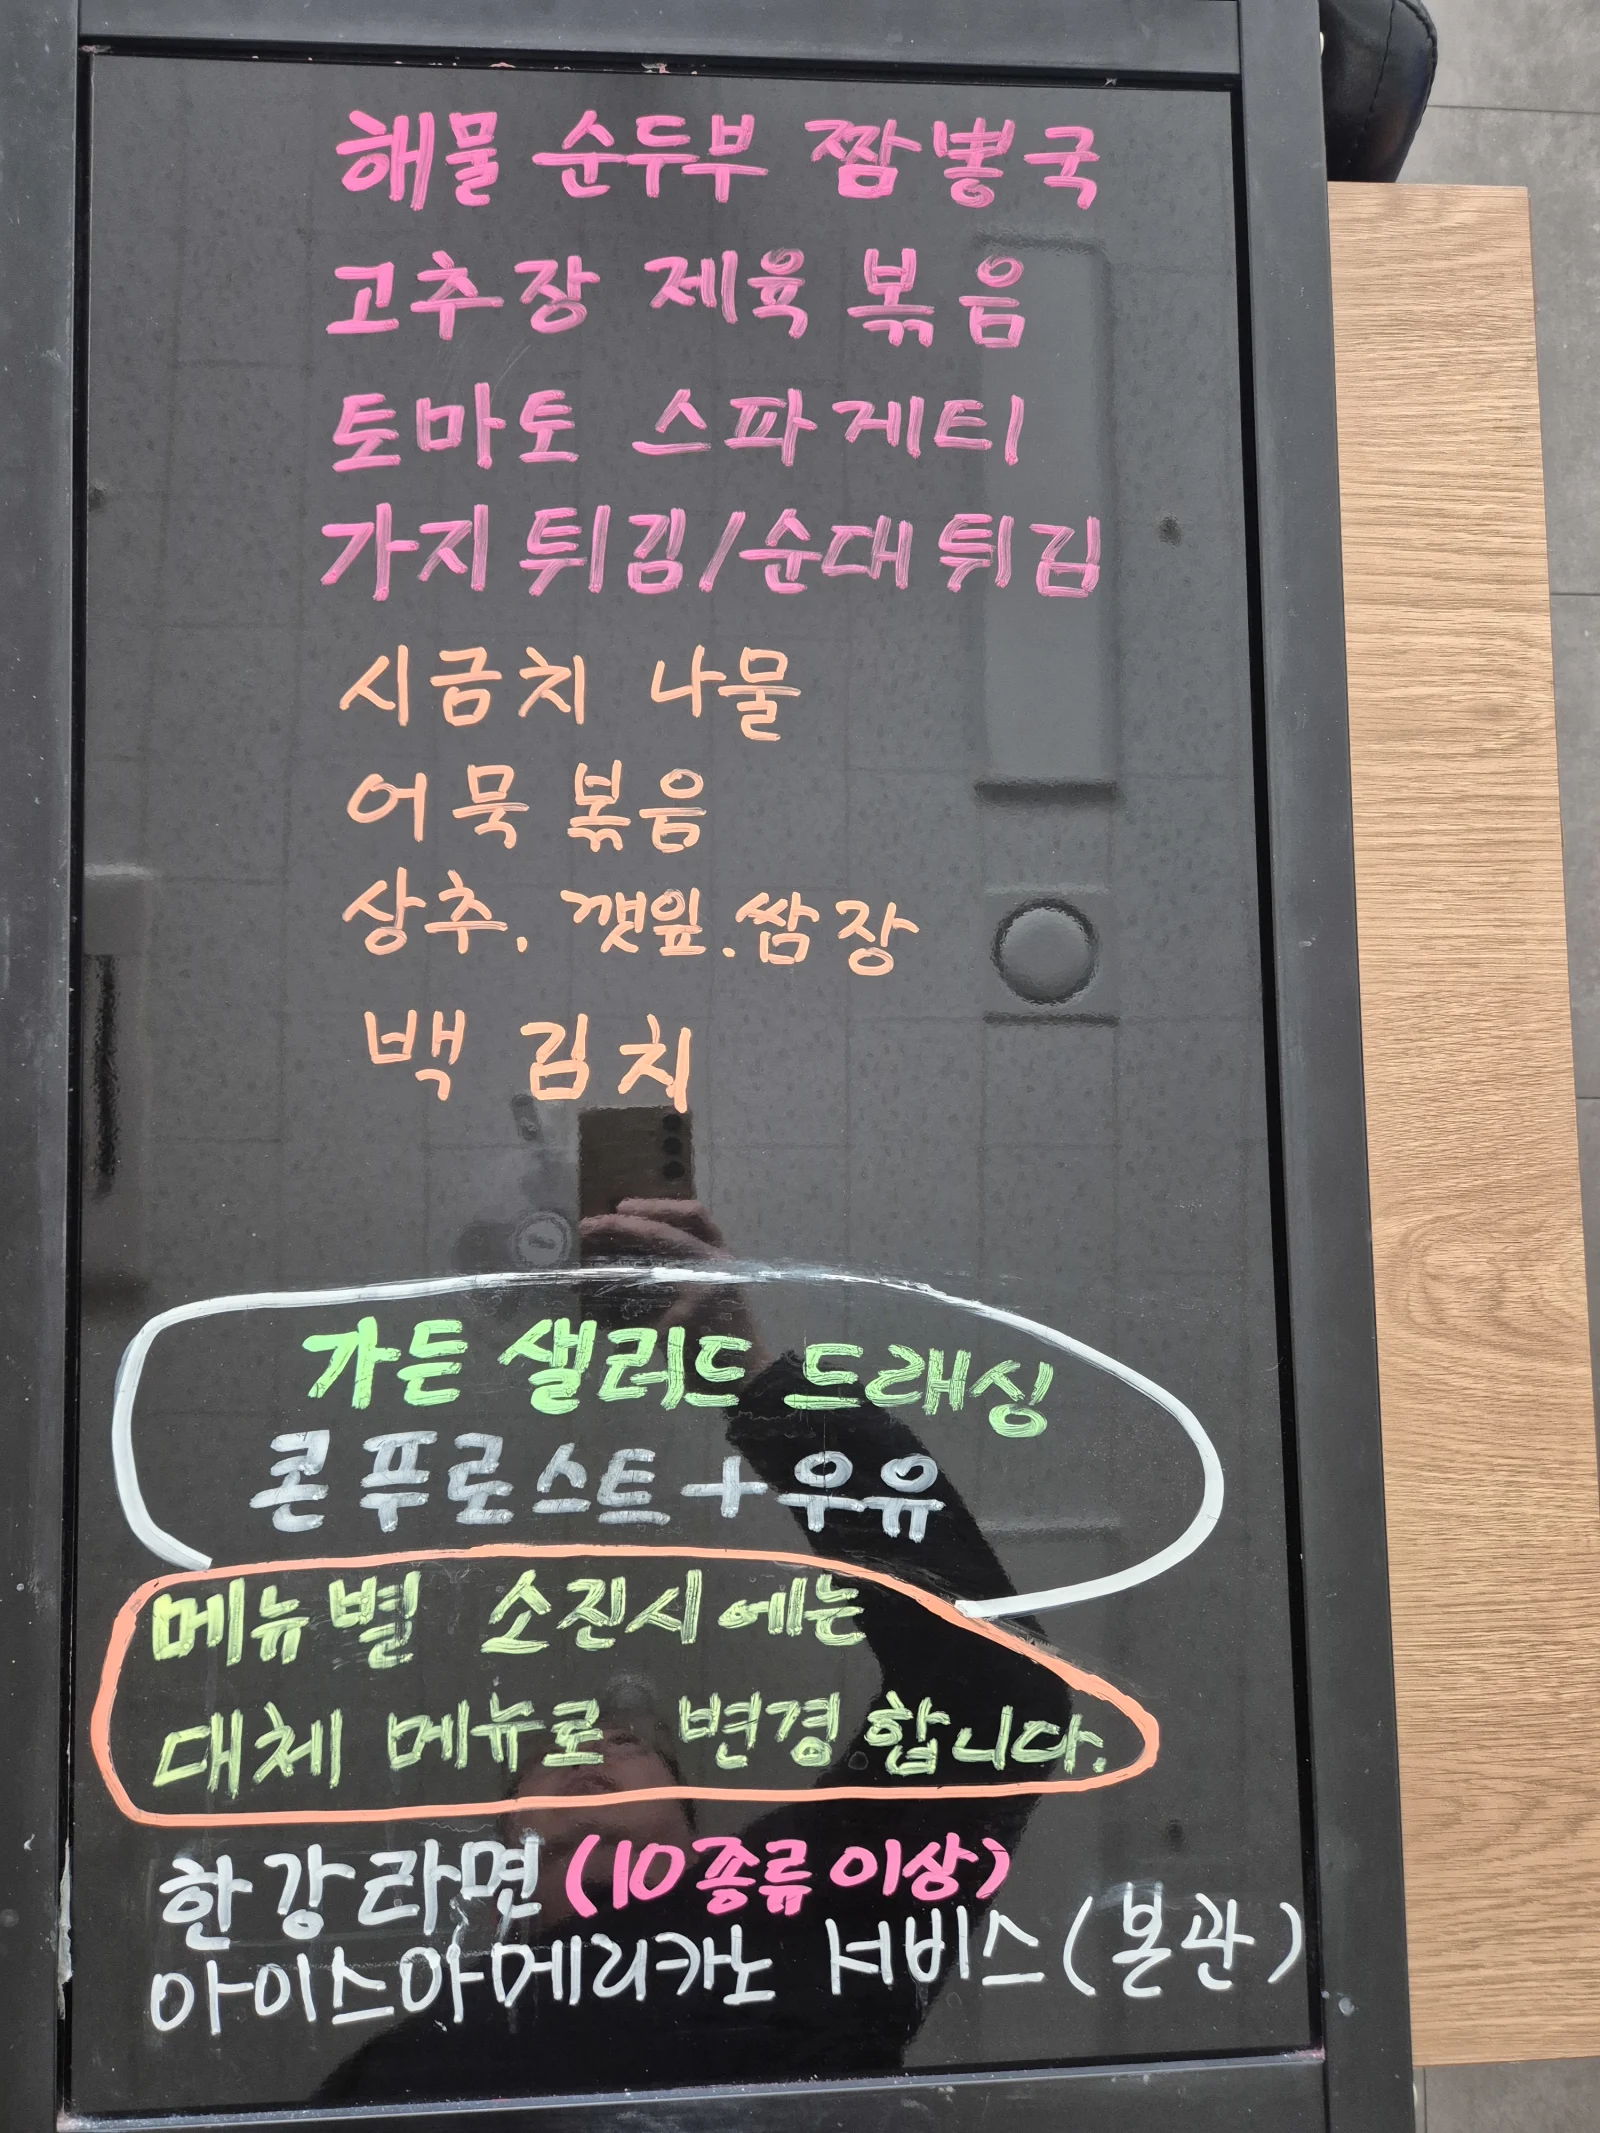 해물 순두부 짬뽕국
고추장 제육 볶음
토마토 스파게티
가지 튀김/순대 튀김
시금치 나물
어묵 볶음
상추. 깻잎. 쌈장
백 김치
가든 샐러드 드래싱
콘푸로스트+우유
메뉴별 소진시에는
대체 메뉴로 변경 합니다.
한강라면 (10종류 이상)
아이스아메리카노 서비스 (본관)